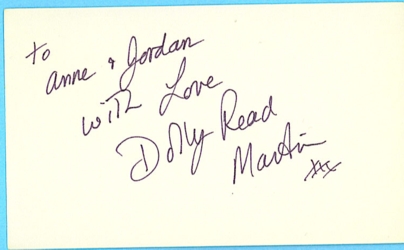 To
Anne & Jordan
with Love
Dolly Read
Martin
xxx